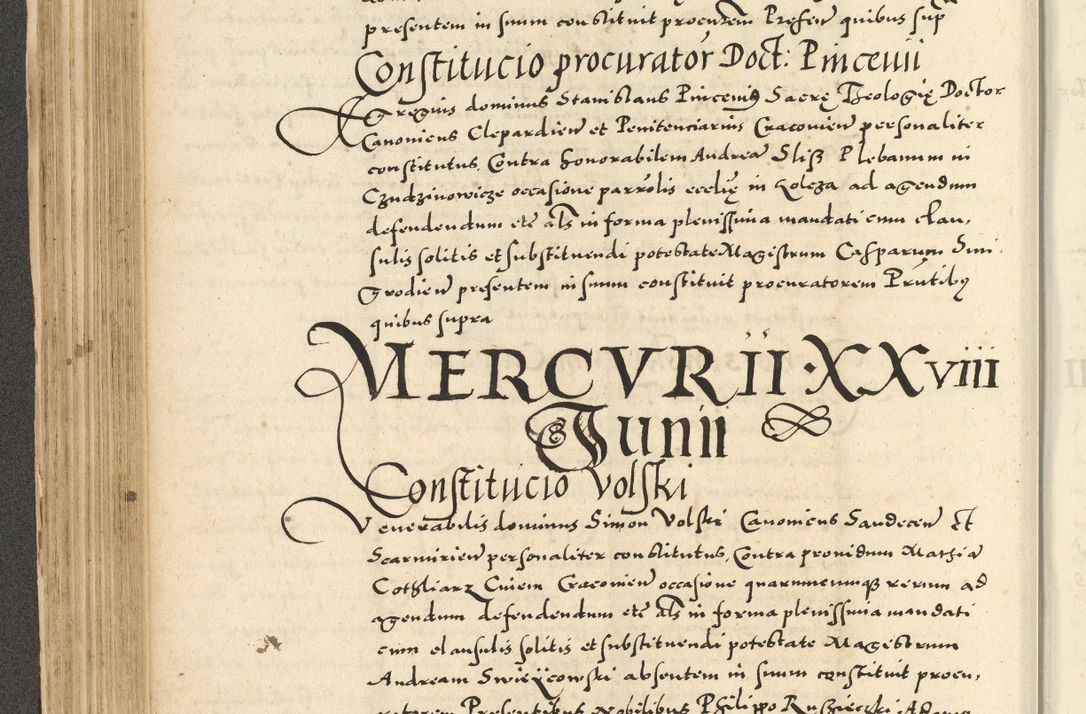 presentem in suum constituit procurem Presen quibus sup
Constitucio procurator Doct: Pincevii
Egregius dominus Stanislaus Pincevius Sacrę Theologię Doctor
Canonicus Clepardien et Penitenciarius Cracovien personaliter
constitutus, Contra honorabilem Andrea Slisz Plebanum in
Czudzinowicze occasione parrolis ecclię in Koleza ad agendum
defendendum etc als in forma plenissima mandati cum clau,
sulis solitis et substituendi potestate Magistrum Casparum Sni
grodien presentem in suum constituit procuratorem Prntibus
quibus supra
MERCVRII · XXviii
Junii
Constitucio Volski
Venerabilis dominus Simon Volski Canonicus Sandecen Et
Scarmirien personaliter constitutus, Contra providum Mathia
Cothliarz Civem Cracovien occasione quarumcumq rerum ad
agendum defendendum etc als in forma plenissima mandati
cum clausulis solitis et substituendi potestate Magistrum
Andream Swieżcowski absentem in suum constituit procu,
ratorem Presentibus Nobilibus Philippo Adamo